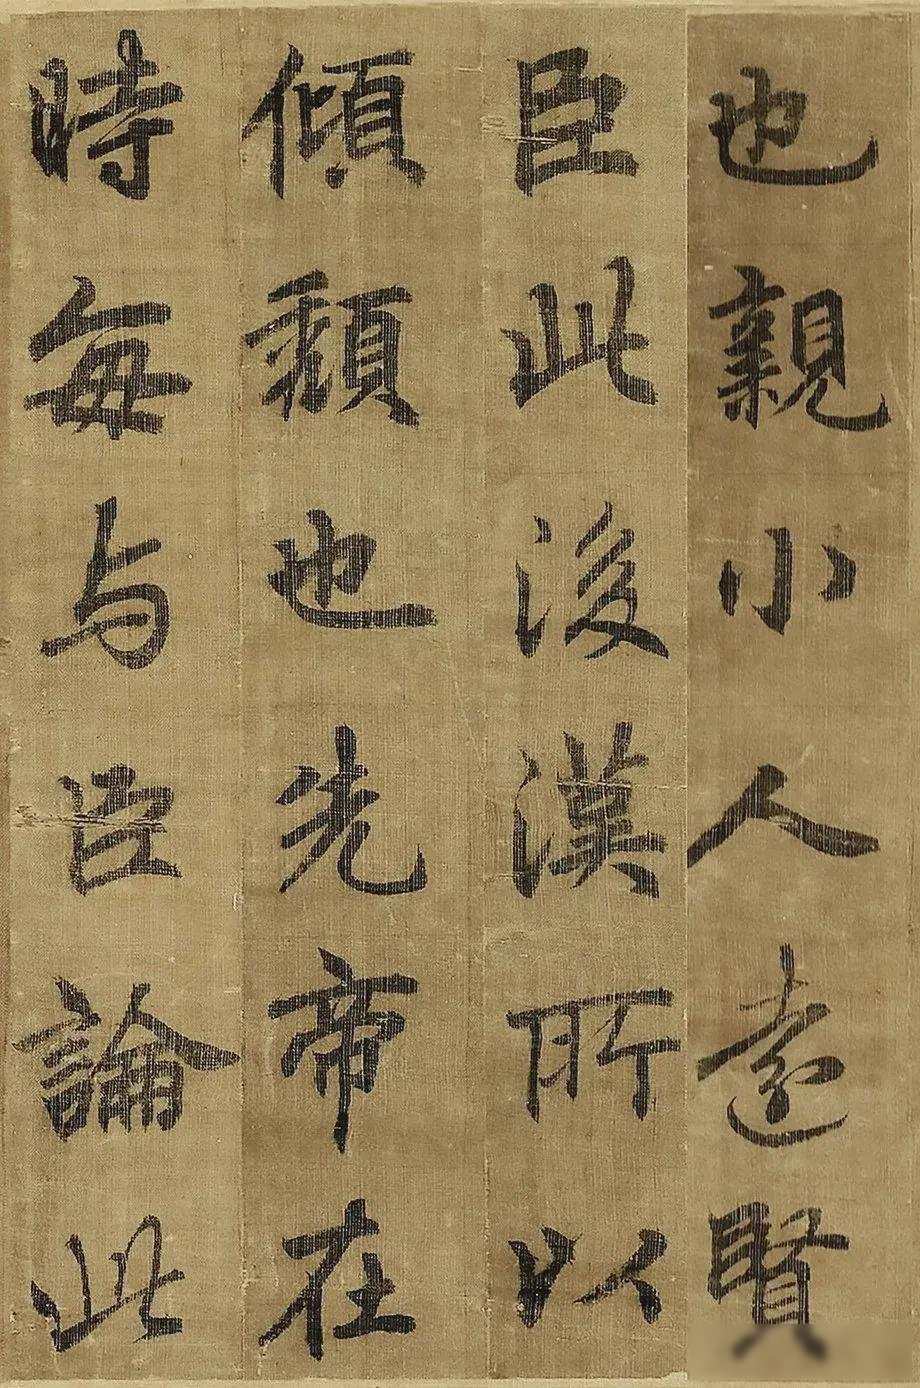 也親小人遠賢
臣此後漢所以
傾頹也先帝在
時每与臣論此